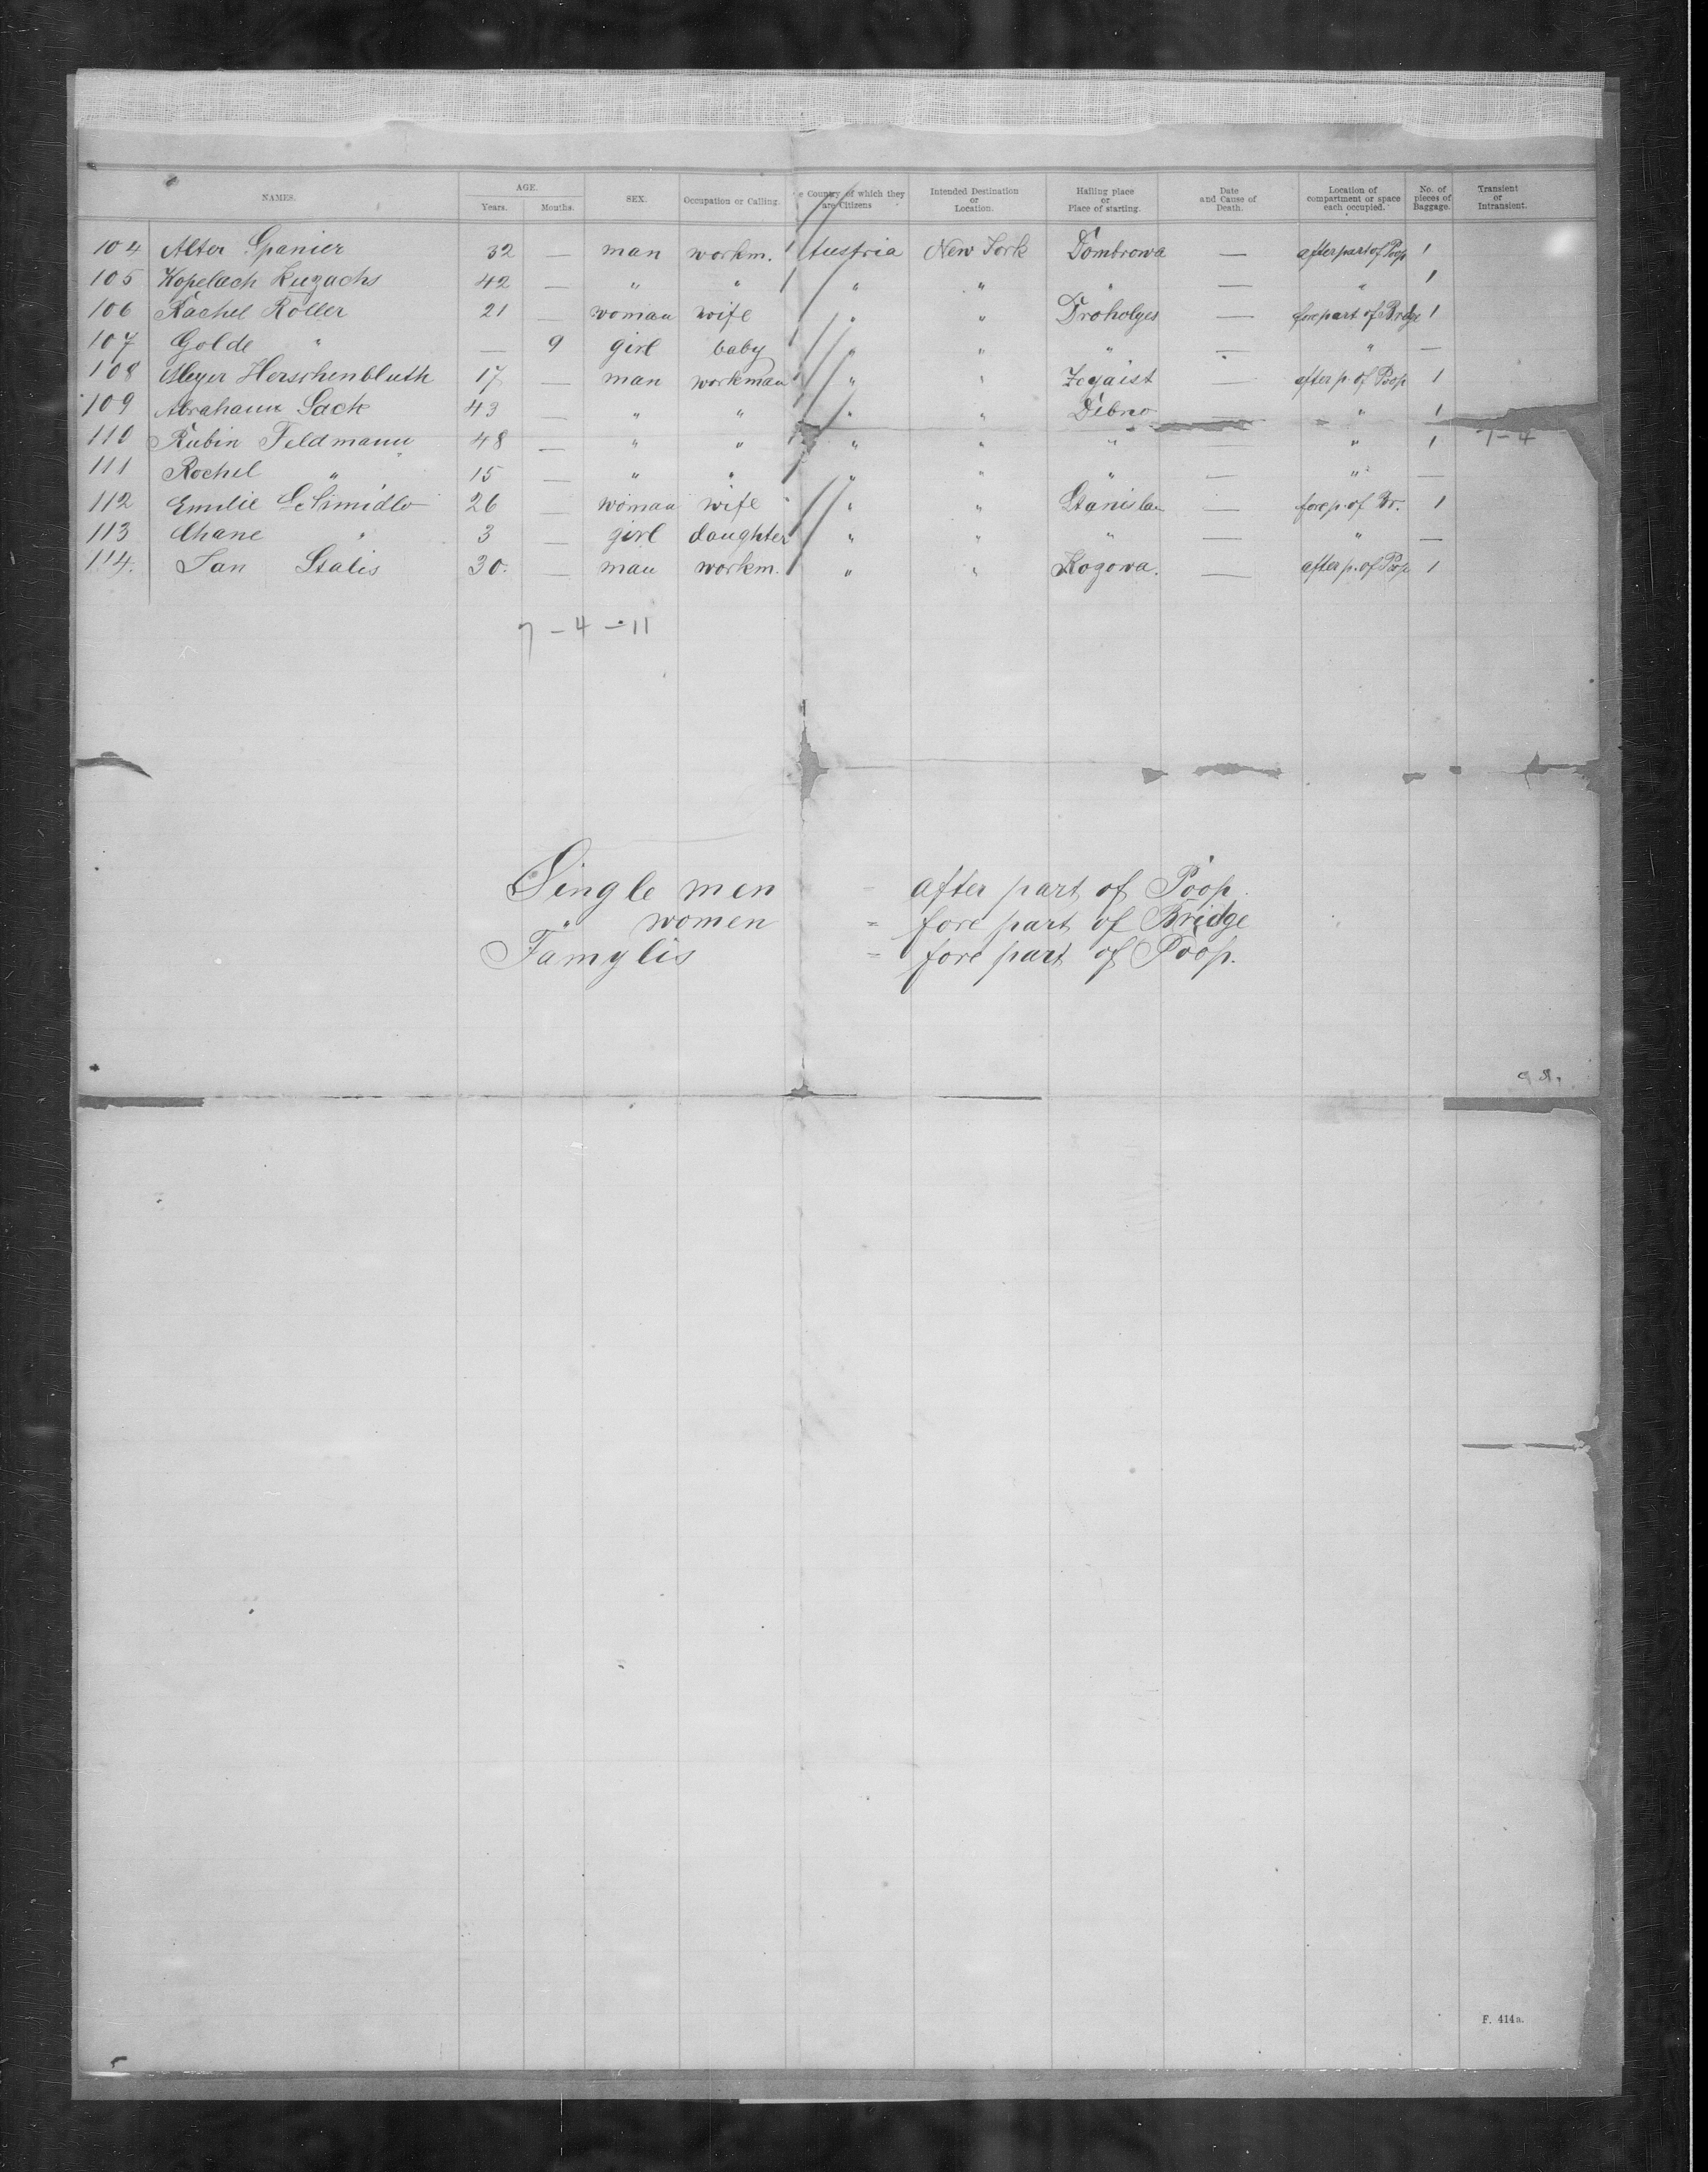 NAMES. AGE. Years. Months. SEX. Occupation or Calling. e Country of which they are Citizens Intended Destination or Location. Hailing place or Place of starting. Date and Cause of Death. Location of compartment or space each occupied. No. of pieces of Baggage. Transient or Intransient.
104 Alter Spanier 32 — man workm. Austria New York Dombrowa — after part of Poop 1
105 Kopelach 42 — " " " " " — " 1
106 Rachel Roller 21 — woman wife " " Droholges — fore part of Brdge 1
107 Golde " — 9 girl baby " " " — " —
108 Meyer Herschenbluth 17 — man workman " " — after p. of Poop 1
109 Abraham Sack 43 — " " " " Debno — " 1
110 Rubin Feldmann 48 — " " " " " — " 1 7-4
111 Rochel " 15 — " " " " " — " —
112 Emilie 26 — woman wife " " Stanislau — fore p. of Br. 1
113 Chane " 3 — girl daughter " " " — " —
114. Jan Stalis 30. — man workm. " " Kogowa. — after p. of Poop 1
7 - 4 - 11
Single men - after part of Poop.
" women = fore part of Bridge
Famylis = fore part of Poop.
F. 414a.